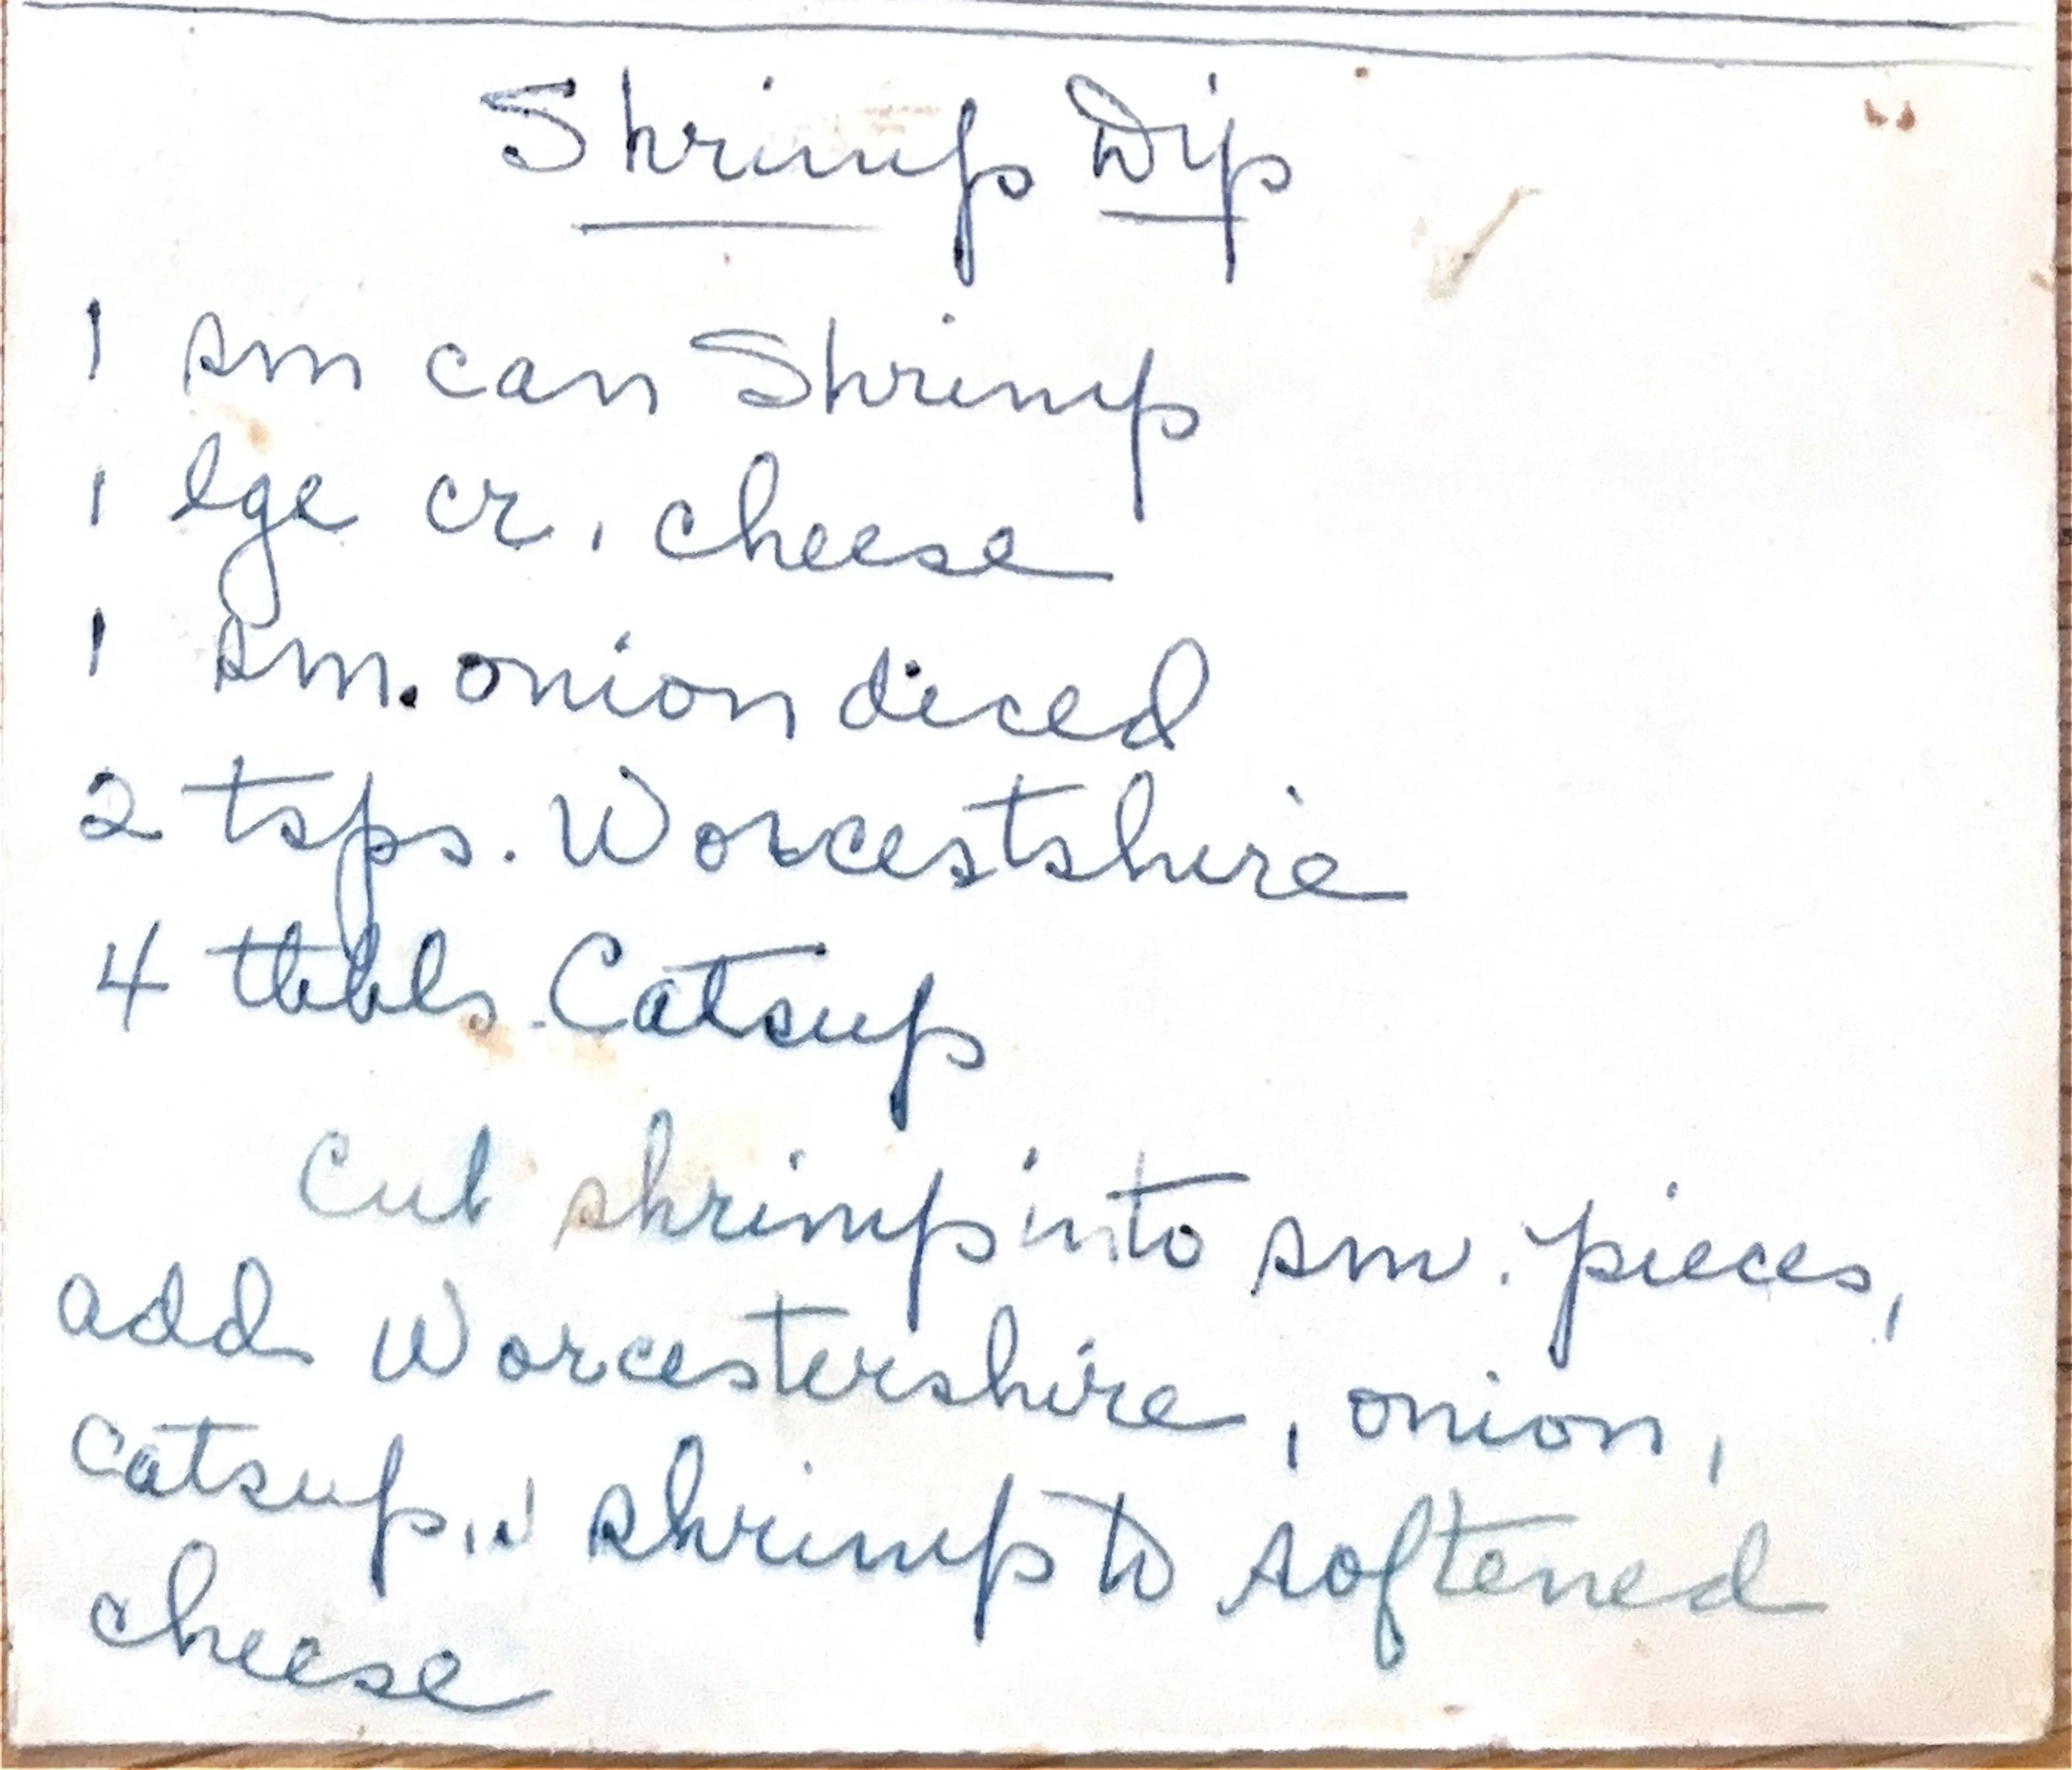 Shrimp Dip
1 sm can Shrimp
1 lge cr. cheese
1 sm. onion diced
2 tsps. Worcestshire
4 tbbls. Catsup
Cut shrimp into sm. pieces,
add Worcestershire, onion,
catsup, shrimp to softened
cheese